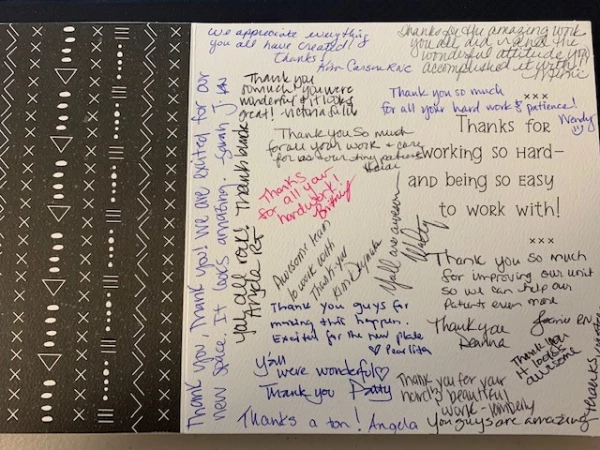 We appreciate everything
you all have created!
Thanks!
Kim Carson RNC
Thanks for the amazing work
you all did and the
wonderful attitude you
accomplished it with!!
Thank you
so much! you were
wonderful & it looks
great! -
Thank you so much
for all your hard work & patience!
Wendy
xxx
Thanks for
working so hard—
and being so easy
to work with!
xxx
Thank you so much
for all your work + care
for our tiny patients
Thanks
for all your
hardwork!
Brittany
Thank you, Thank you! We are excited for our
new space. It looks amazing - Sarah J.
you all rock! Thank you
Angela RT
Awesome team
to work with
Thank you
Kim
Y'all are awesome
Thank you so much
for improving our unit
so we can help our
patients even more
Joanie RN
Thank you guys for
making this happen.
Excited for the new place
Thank you
Deanna
Thank you
It looks
awesome
Y'all
were wonderful
Thank you Patty
Thank you for your
hard & beautiful
work - Kimberly
Thanks a ton! Angela
You guys are amazing
thanks